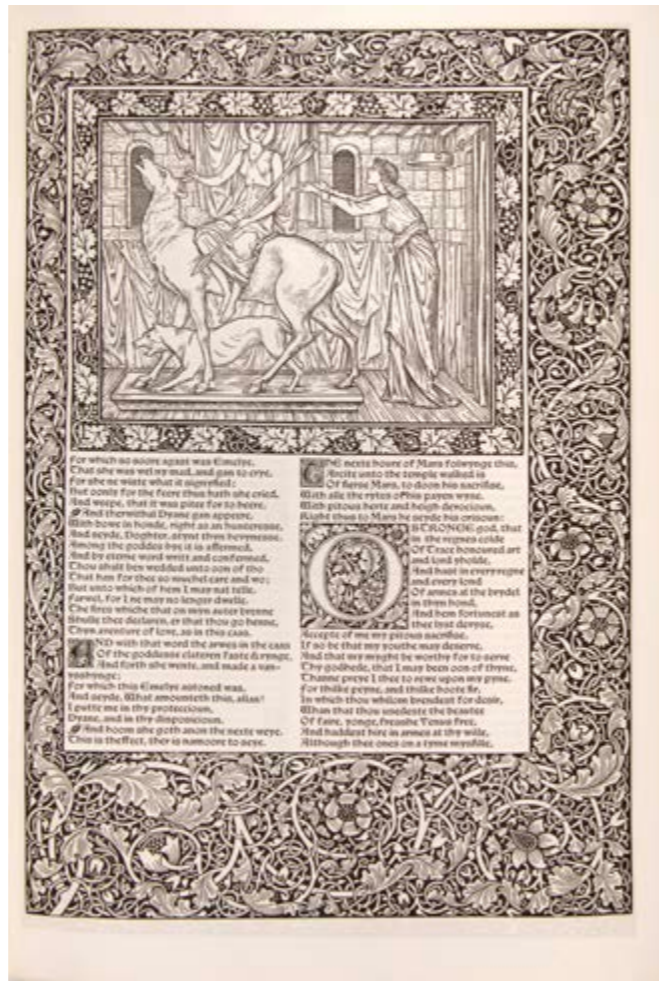 For which so soore agast was Emelye,
That she was wel ny mad, and gan to crye,
For she ne wiste what it signyfied;
But oonly for the feere thus hath she cried,
And weepe, that it was pitee for to heere.
And therwithal Dyane gan appeere,
With bowe in honde, right as an hunteresse,
And seyde, Doghter, stynt thyn hevynesse.
Among the goddes hye it is affermed,
And by eterne word writt and confermed,
Thou shalt ben wedded unto oon of tho
That han for thee so muchel care and wo;
But unto which of hem I may nat telle.
Farwel, for I ne may no lenger dwelle.
The fires whiche that on myn auter brenne
Shulle thee declaren, er that thou go henne,
Thyn aventure of love, as in this caas.
AND with that word the arwes in the caas
Of the goddesse clateren faste & rynge,
And forth she wente, and made a van-
ysshynge;
For which this Emelye astoned was,
And seyde, What amounteth this, allas!
I putte me in thy proteccioun,
Dyane, and in thy disposicioun.
And hoom she goth anon the nexte weye.
This is theffect, ther is namoore to seye.
THE nexte houre of Mars folwynge this,
Arcite unto the temple walked is
Of fierse Mars, to doon his sacrifise,
With alle the rytes of his payen wyse.
With pitous herte and heigh devocioun,
Right thus to Mars he seyde his orisoun:
O STRONGE god, that
in the regnes colde
Of Trace honoured art
and lord yholde,
And hast in every regne
and every lond
Of armes al the brydel
in thyn hond,
And hem fortunest as
thee lyst devyse,
Accepte of me my pitous sacrifise.
If so be that my youthe may deserve,
And that my myght be worthy for to serve
Thy godhede, that I may been oon of thyne,
Thanne preye I thee to rewe upon my pyne.
For thilke peyne, and thilke hoote fir,
In which thou whilom brendest for desir,
Whan that thou usedeste the beautee
Of faire, yonge, fresshe Venus free,
And haddest hire in armes at thy wille,
Although thee ones on a tyme mysfille,